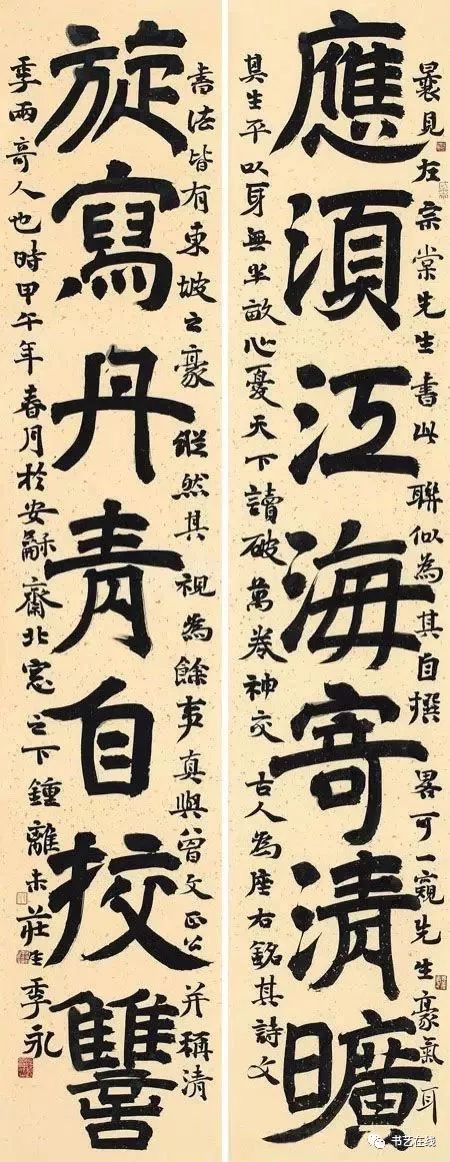 應須江海寄清曠
曩見左宗棠先生書此聯似為其自撰畧可一窺先生豪氣耳
其生平以身無半畝心憂天下讀破萬卷神交古人為座右銘其詩文
旋寫丹青自挍讐
書法皆有東坡之豪縱然其視為餘事真與曾文正公并稱清
季兩奇人也時甲午年春月於安龢齋北窓之下鍾離未莊生季永
书艺在线